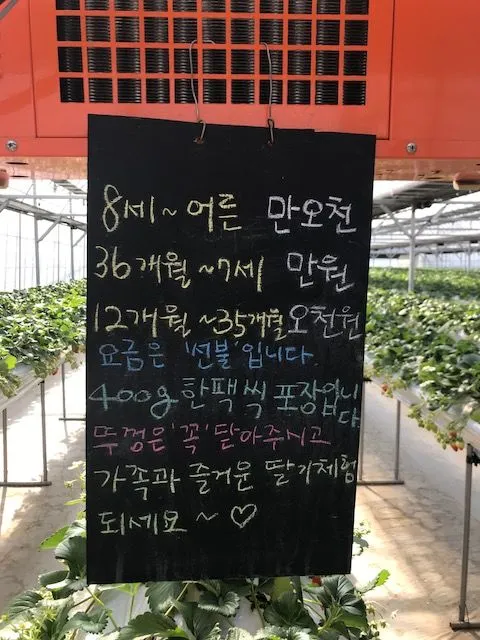 8세~어른 만오천
36개월~7세 만원
12개월~35개월 오천원
요금은 '선불'입니다.
400g 한팩씩 포장입니다
뚜껑은 '꼭' 닫아주시고
가족과 즐거운 딸기체험
되세요~♡